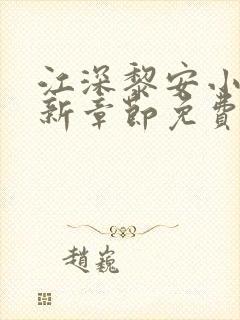 江深黎安小
新章節免費
趙巍